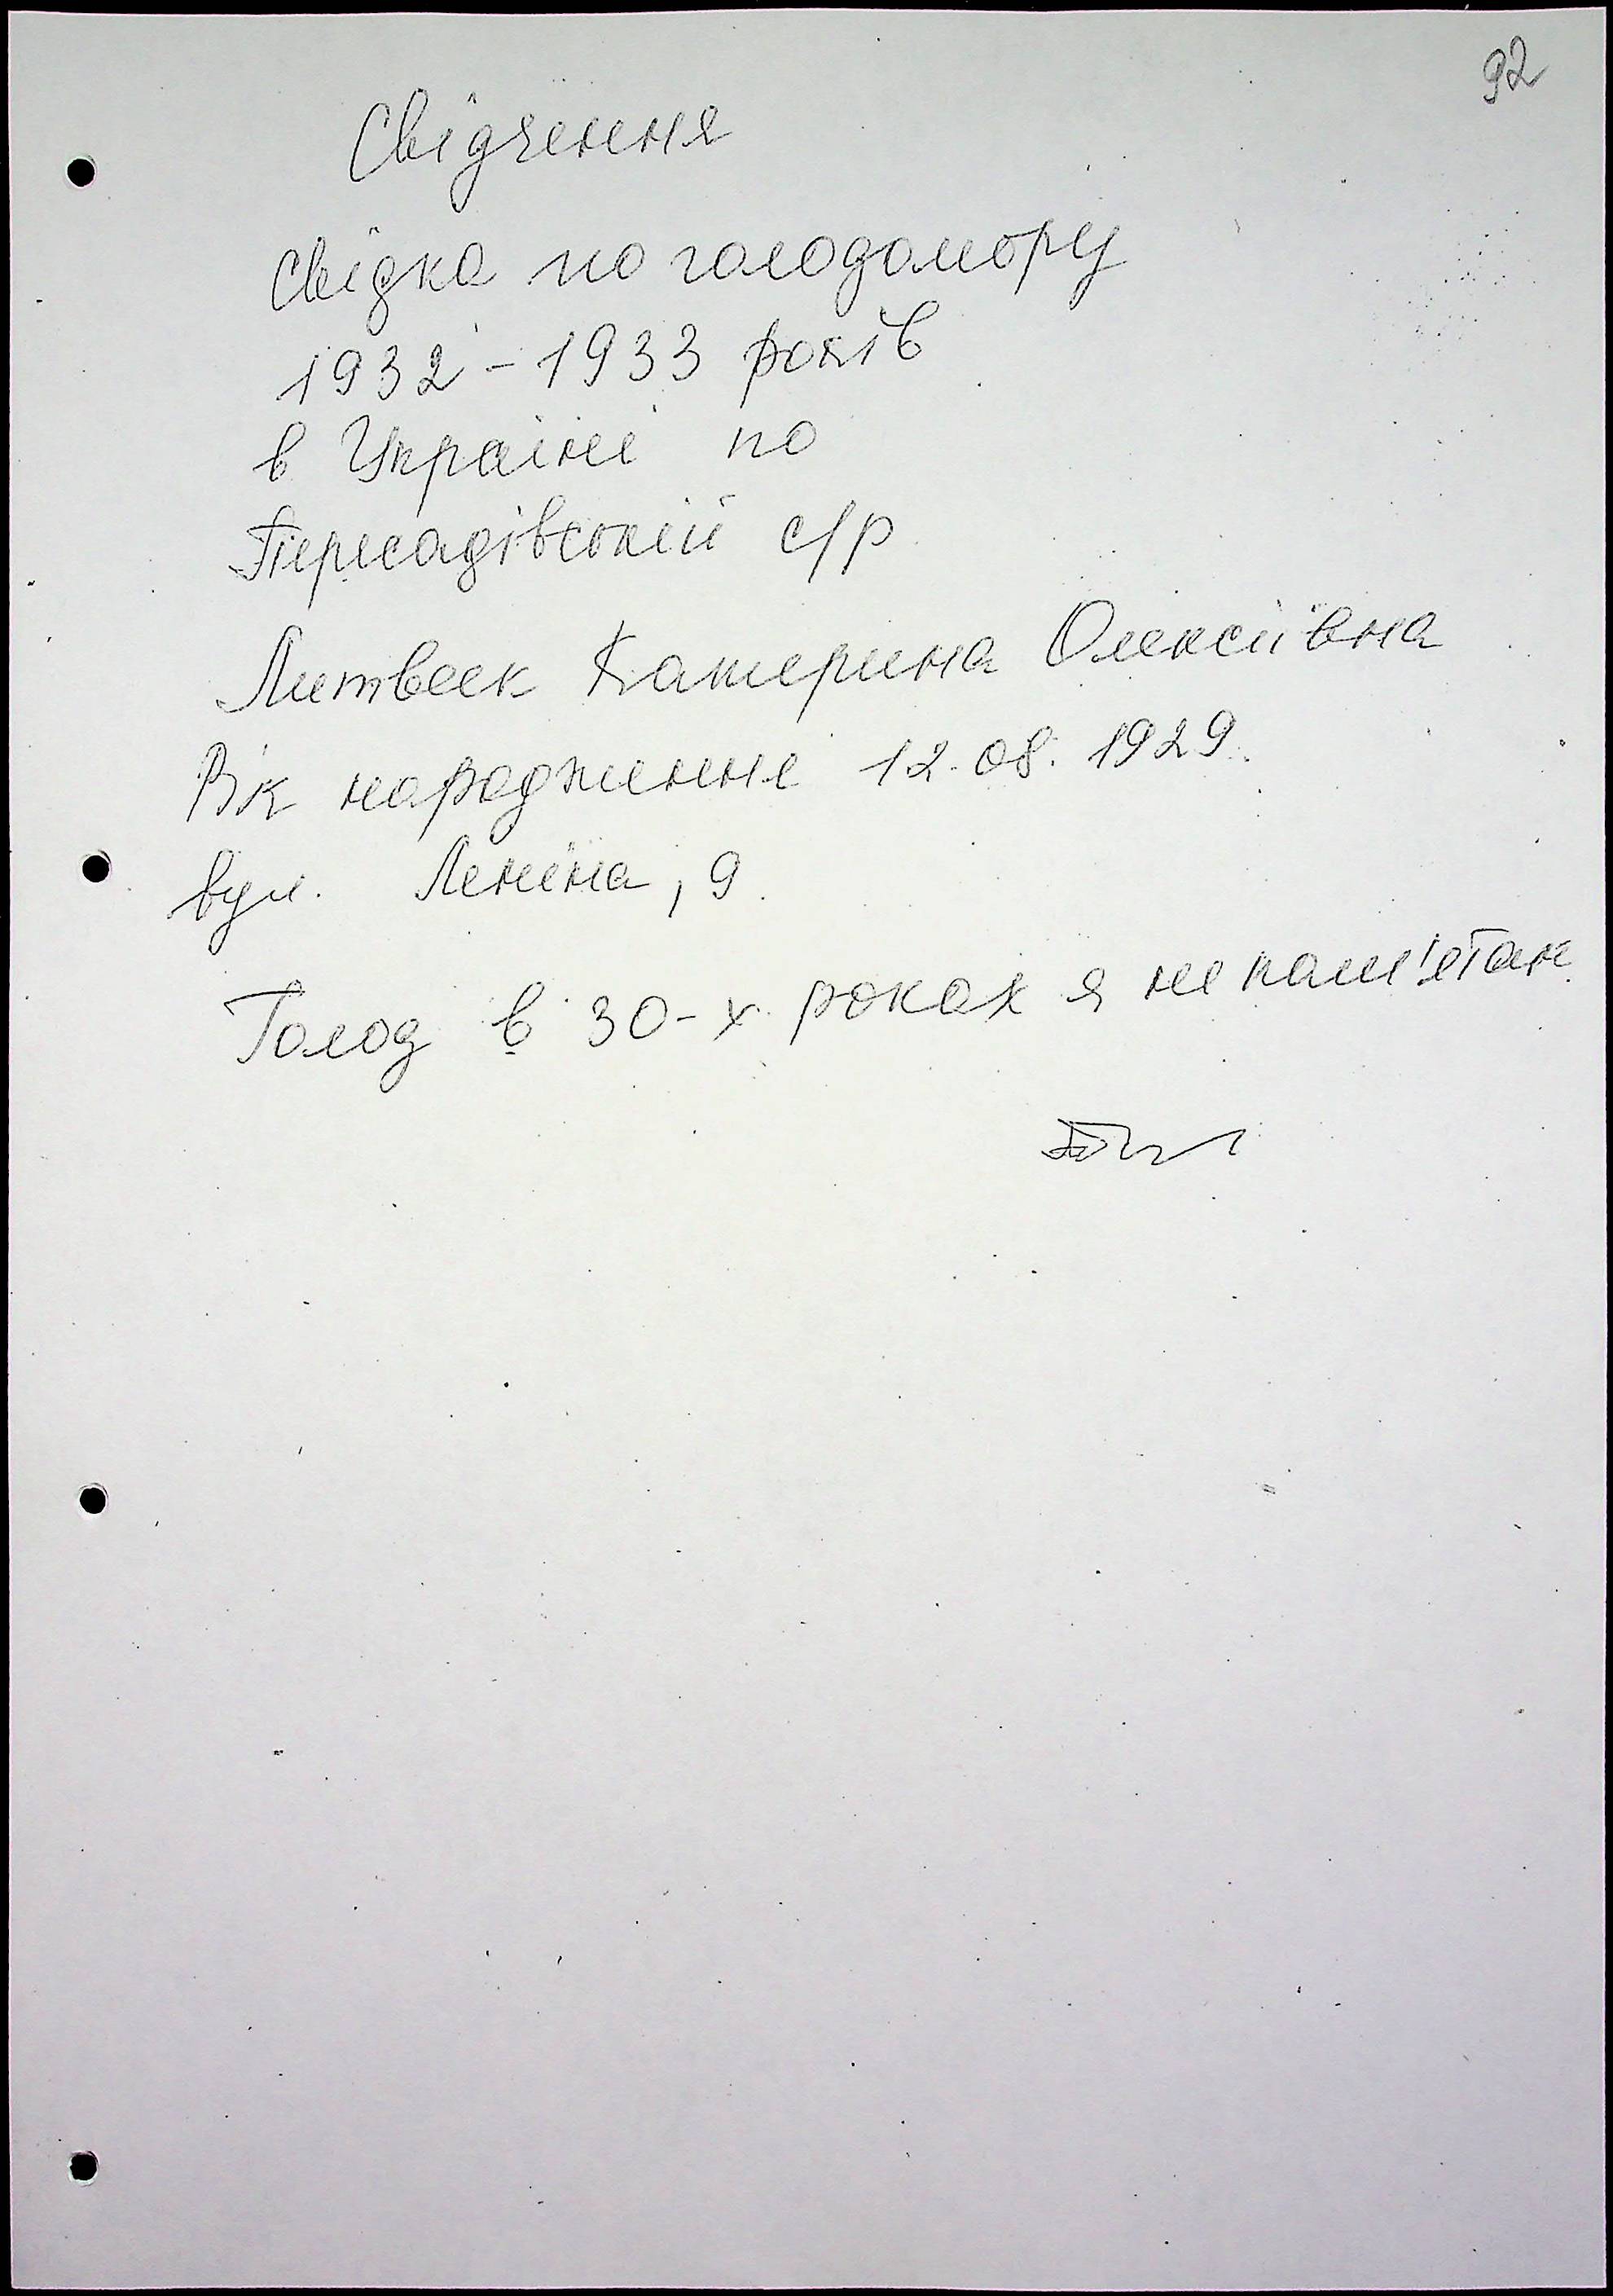 92
Свідчення
свідка по голодомору
1932-1933 років
в Україні по
Пересадівській с/р
Литвак Катерина Олексіївна
Вік народження 12.08.1929.
вул. Леніна, 9.
Голод в 30-х роках я не пам'ятаю